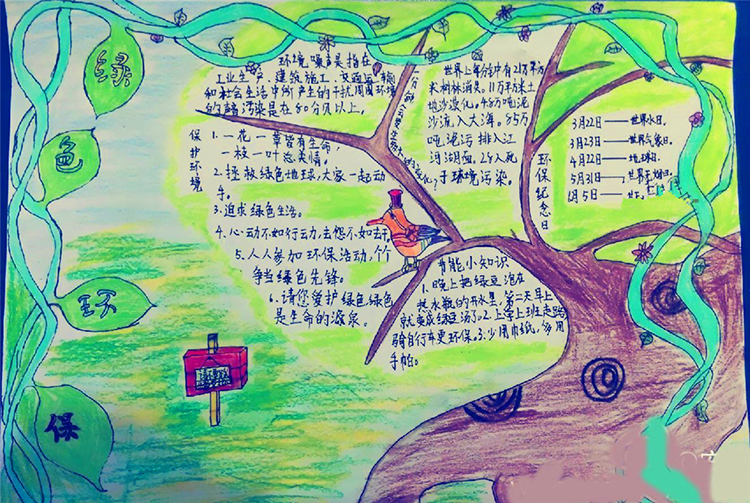 绿
色
环
保
环境噪声是指在
工业生产、建筑施工、交通运输
和社会生活中所产生的干扰周围环境
的声音污染是在50分贝以上。
保护环境
1. 一花一草皆有生命,
一枝一叶总关情。
2. 拯救绿色地球,大家一起动
手。
3. 追求绿色生活。
4. 心动不如行动,去怨不如去干
5. 人人参加环保活动,个个
争当绿色先锋。
6. 请您爱护绿色绿色
是生命的源泉。
世界上每分钟中有21万平方
米树林消失。11万平方米土
地沙漠化。4.8万吨泥
沙流入大海。85万
吨泥污排入江
河湖面。28人死
于环境污染。
环保纪念日
3月22日——世界水日。
3月23日——世界气象日。
4月22日——地球日。
5月31日——世界无烟日。
6月5日——世
节能小知识
1. 晚上把绿豆泡在
热水瓶的开水里,第二天早上
就变成绿豆汤了。2.上学上班走路
骑自行车更环保。3.少用巾纸,多用
手帕。